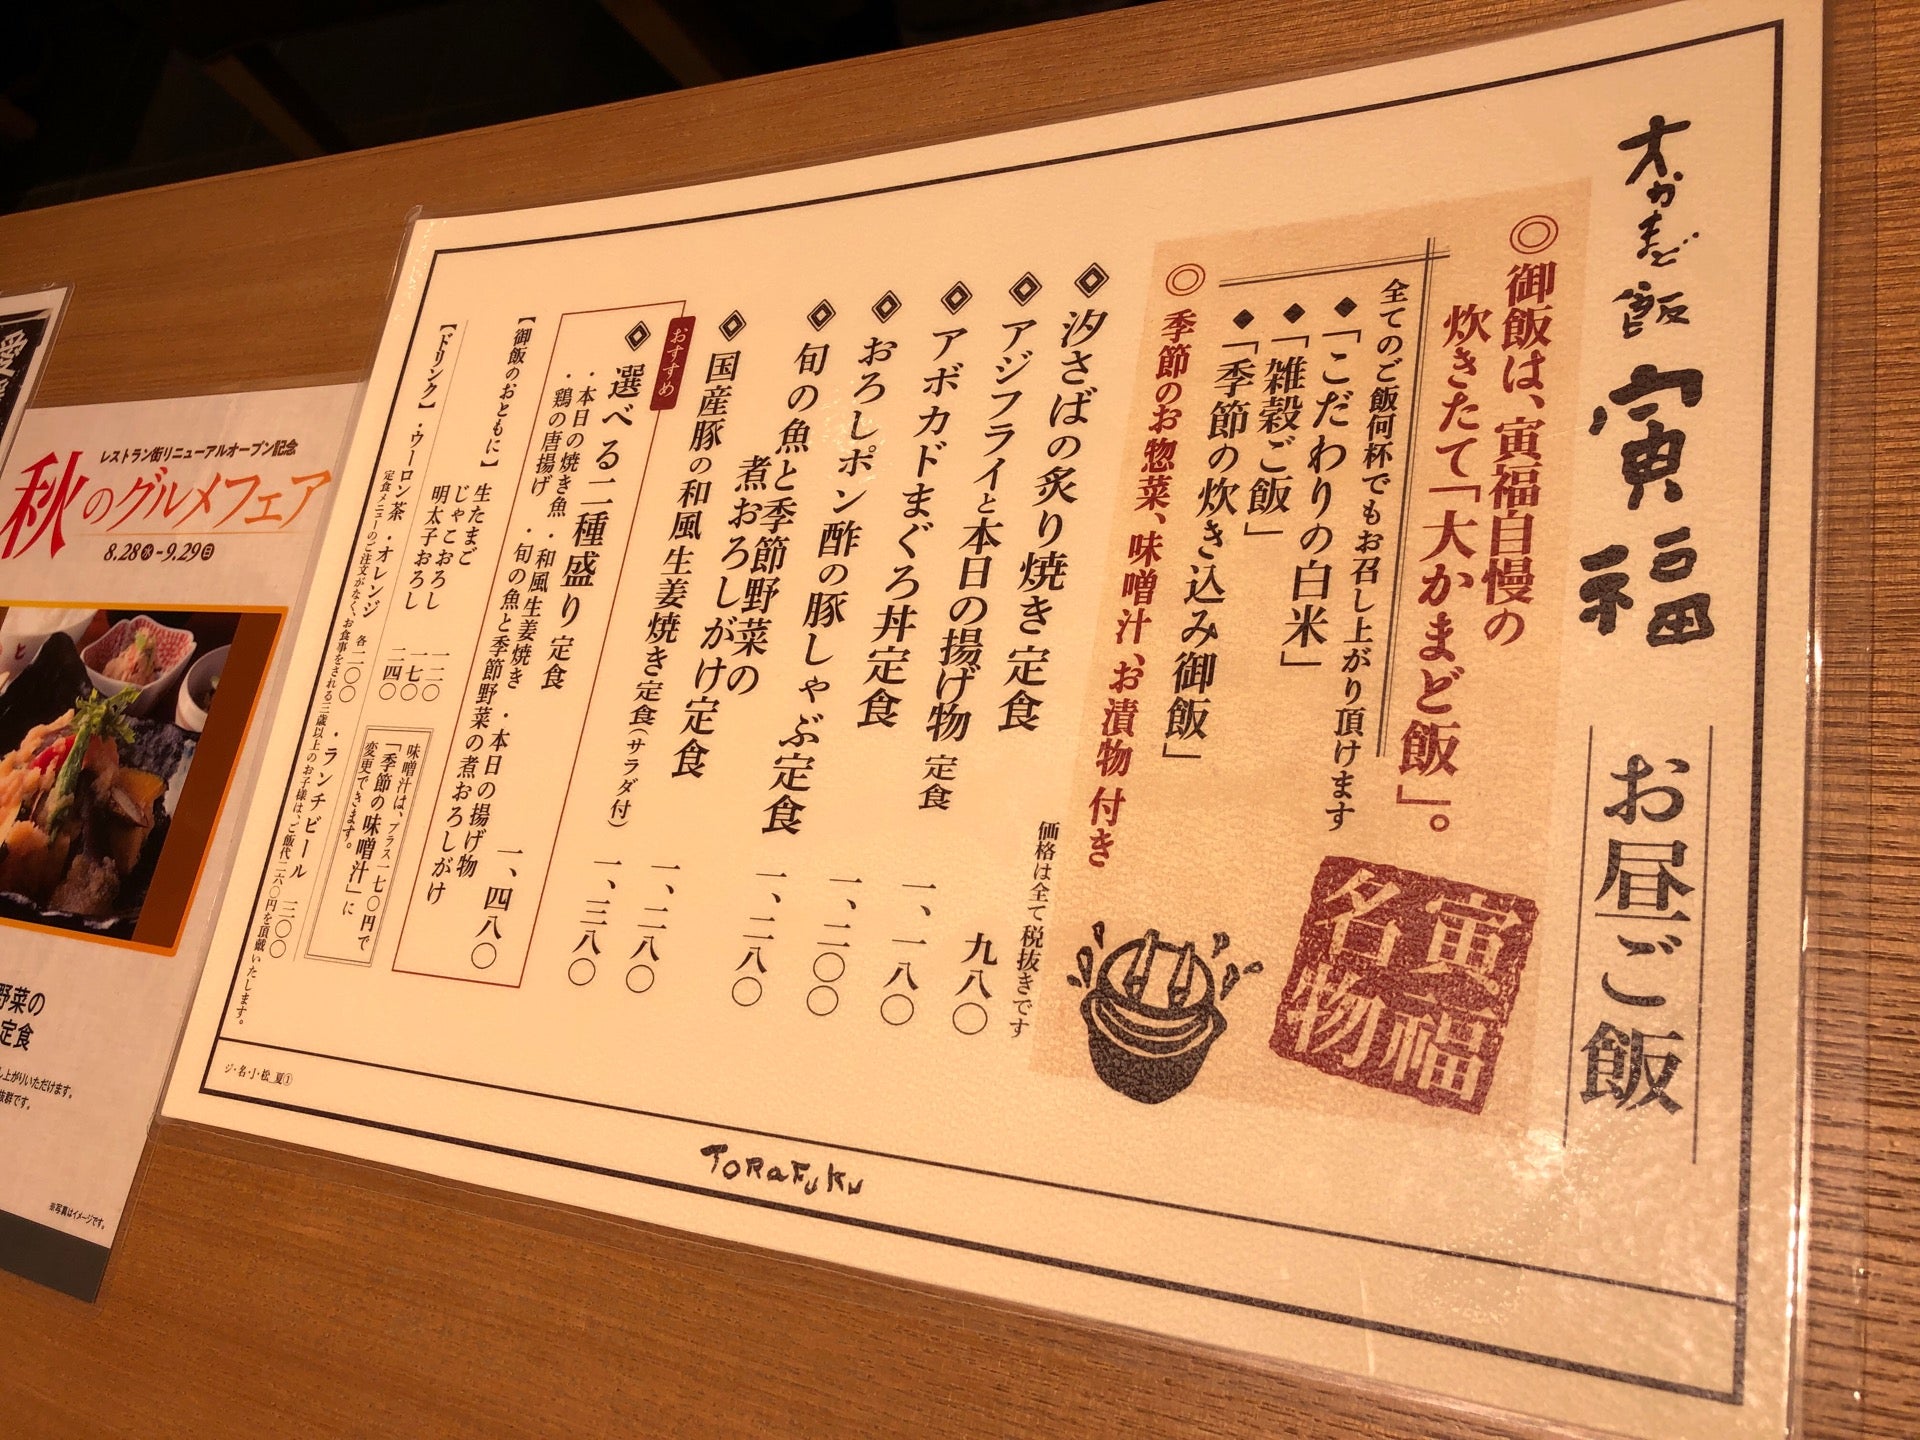 大かまど飯 寅福
お昼ご飯
◎御飯は、寅福自慢の
炊きたて「大かまど飯」。
全てのご飯何杯でもお召し上がり頂けます
◆「こだわりの白米」
◆「雑穀ご飯」
◆「季節の炊き込み御飯」
◎季節のお惣菜、味噌汁、お漬物 付き
寅福
名物
価格は全て税抜きです
汐さばの炙り焼き定食 九八〇
アジフライと本日の揚げ物 定食 一、一八〇
アボカドまぐろ丼定食 一、二〇〇
おろしポン酢の豚しゃぶ定食 一、二八〇
旬の魚と季節野菜の
煮おろしがけ定食 一、二八〇
国産豚の和風生姜焼き定食(サラダ付) 一、三八〇
おすすめ
選べる二種盛り 定食 一、四八〇
・本日の焼き魚 ・和風生姜焼き ・本日の揚げ物
・鶏の唐揚げ ・旬の魚と季節野菜の煮おろしがけ
【御飯のおともに】 生たまご 一二〇
じゃこおろし 一七〇
明太子おろし 二四〇
味噌汁は、プラス一七〇円で
「季節の味噌汁」に
変更できます。
【ドリンク】 ・ウーロン茶 ・オレンジ 各二〇〇 ・ランチビール 三〇〇
定食メニューのご注文がなく、お食事をされる三歳以上のお子様は、ご飯代二六〇円を頂戴いたします。
ジ・名・小・松_夏①
TORaFuKu
レストラン街リニューアルオープン記念
秋のグルメフェア
8.28㊌-9.29㊐
野菜の
定食
し上がりいただけます。
抜群です。
※写真はイメージです。